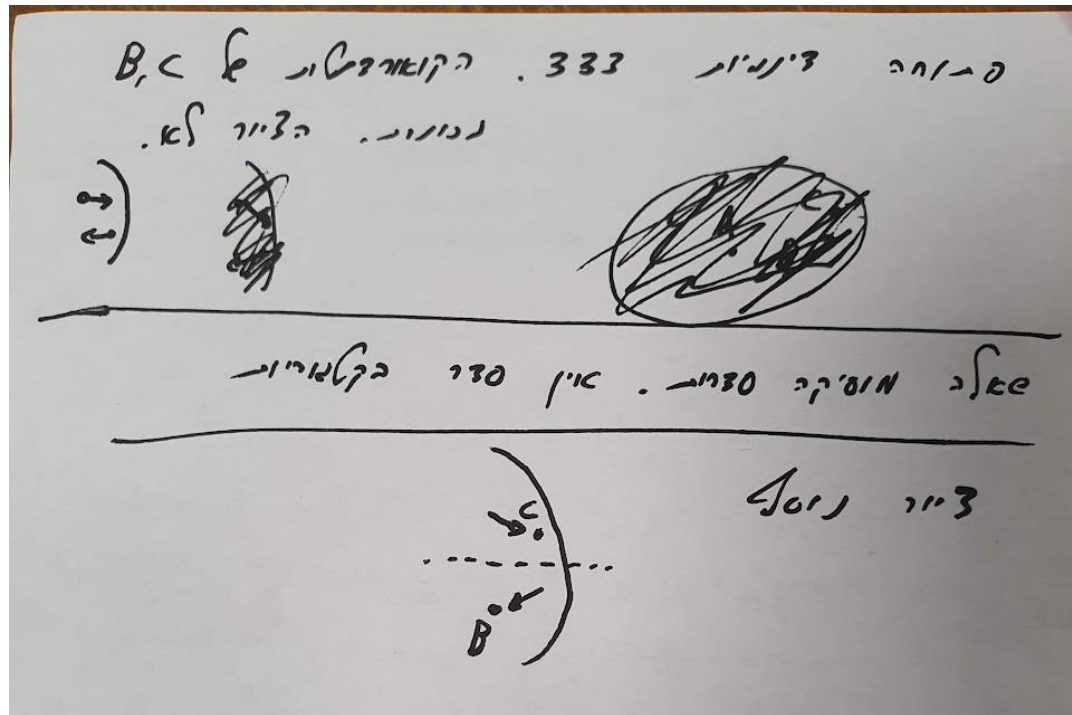 פתוחה דינמיות 333. הקואורדינטות של B, C
נכונות. הציור לא.
שאלה מוסיקה סדרות. אין סדר בקטגוריות
ציור נוסף
C
B